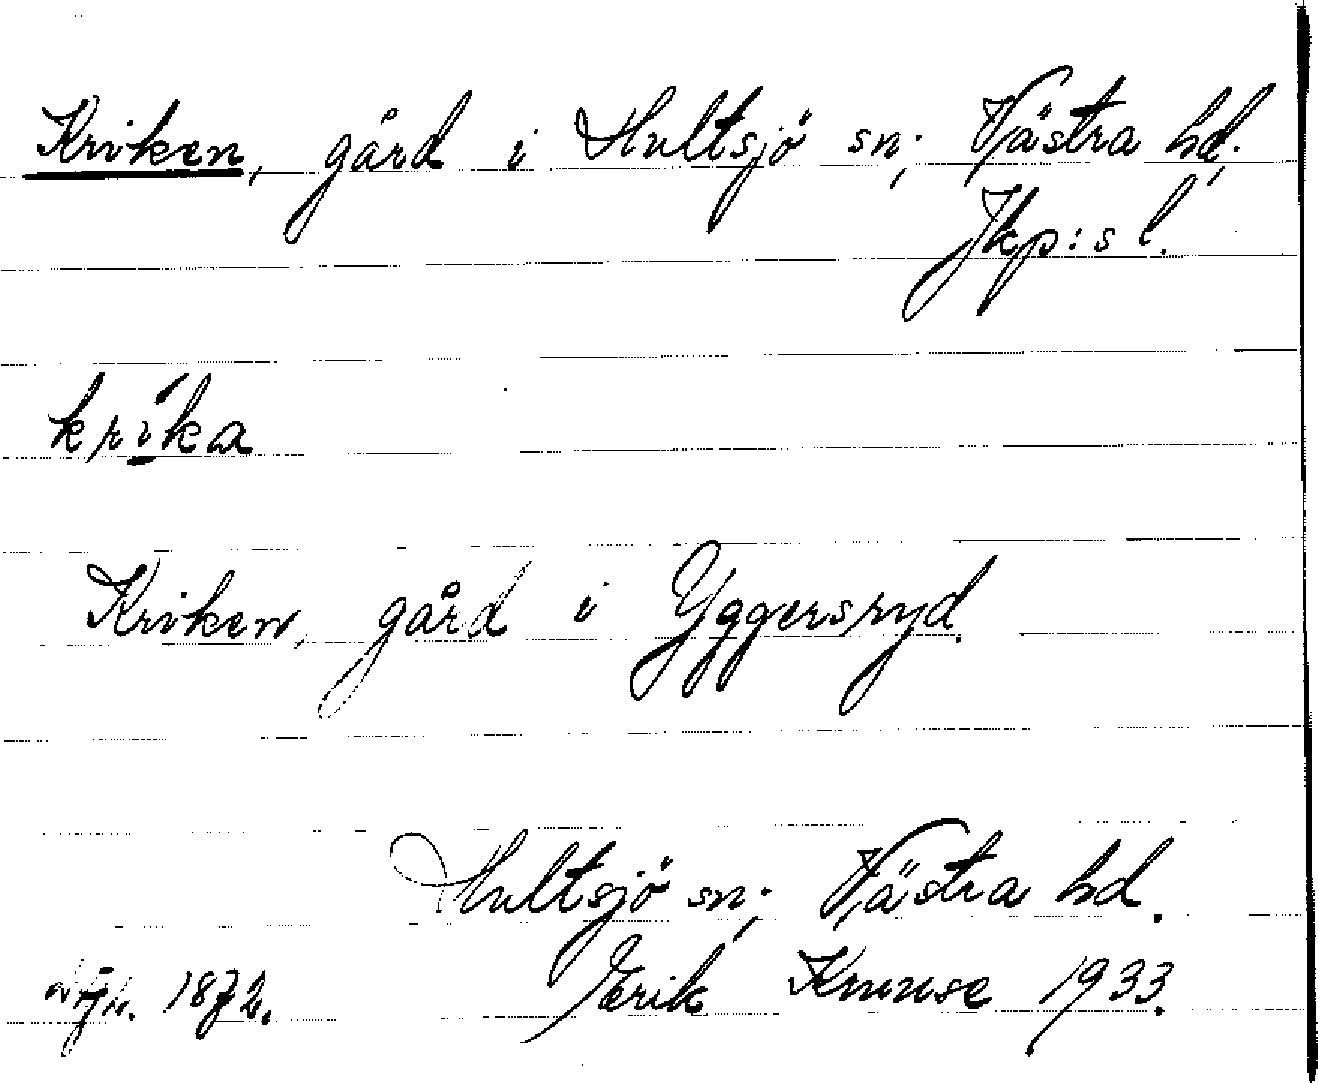 Kriken, gård i Hultsjö sn; Västra hd;
Jkp:s l.
krika
Kriken, gård i Yggersryd.
Hultsjö sn; Västra hd.
1872. Erik Knuuse 1933.